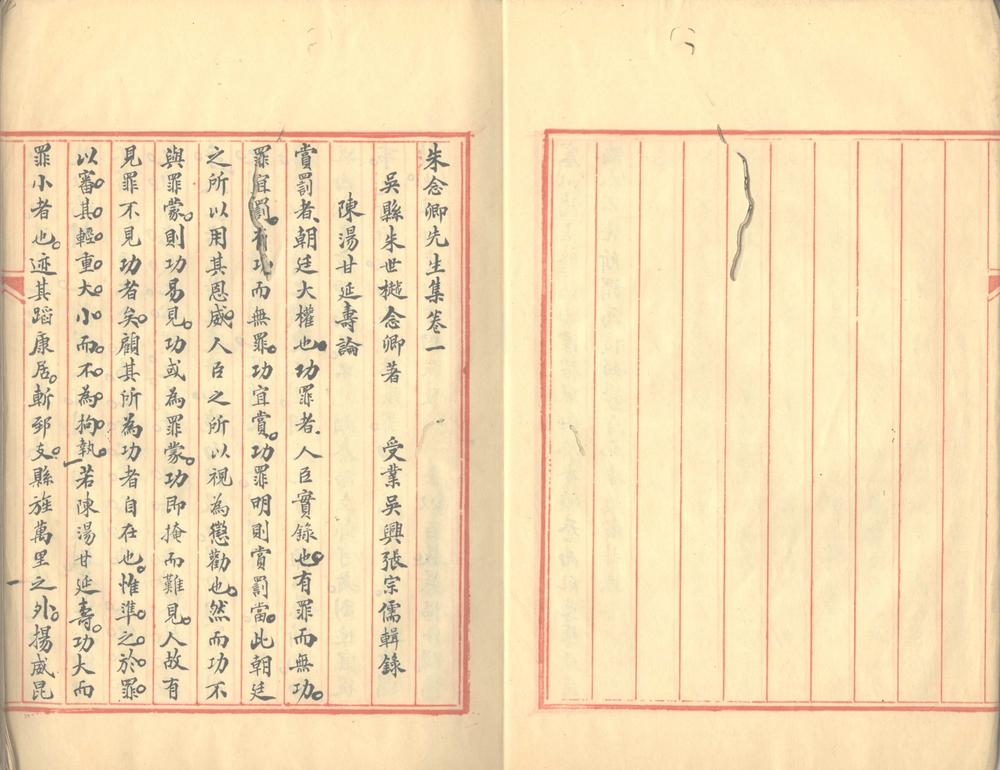 朱念卿先生集卷一
吳縣朱世樾念卿著　受業吳興張宗儒輯錄
陳湯甘延壽論
賞罰者、朝廷大權也。功罪者、人臣實錄也。有罪而無功。
罪宜罰。有功而無罪。功宜賞。功罪明則賞罰當。此朝廷
之所以用其恩威。人臣之所以視為懲勸也。然而功不
與罪蒙。則功易見。功或為罪蒙。功即掩而難見。人故有
見罪不見功者矣。顧其所為功者自在也。惟準之於罪。
以審其輕重大小而不為拘執。若陳湯甘延壽。功大而
罪小者也。迹其蹈康居。斬郅支。縣旌萬里之外。揚威昆
一